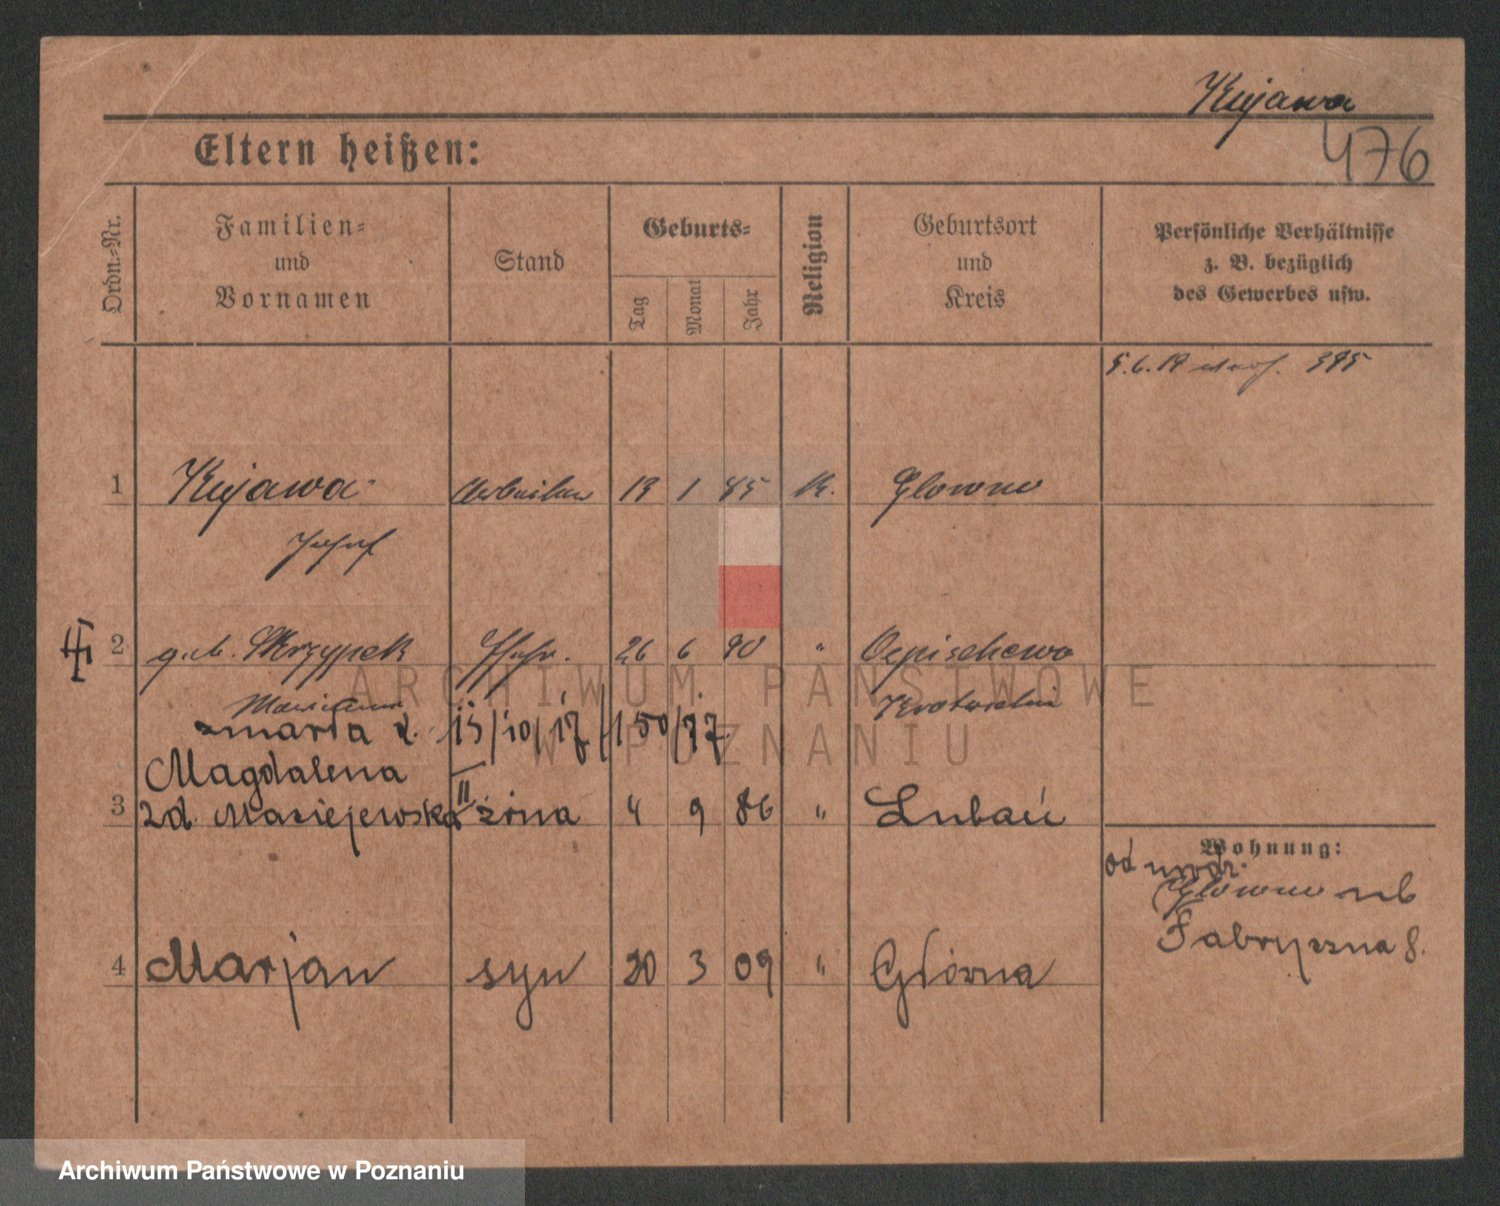 Kujawa
476
Eltern heißen:
Ordn.-Nr.
Familien-
und
Vornamen
Stand
Geburts-
Tag
Monat
Jahr
Religion
Geburtsort
und
Kreis
Persönliche Verhältnisse
z. B. bezüglich
des Gewerbes usw.
5.6.19 395
1 Kujawa Arbeiter 19 1 85 K. Glowno
Josef
2 geb. Skrzypek Ehefr. 26 6 90 "
Marianna Krotoschin
zmarła d. 15/10/17 /150/17
Magdalena II
3 zd. Maciejewska żona 4 9 86 " Lubań
Wohnung:
od
Glowno
Fabryczna 8.
4 Marjan syn 20 3 09 " Główna
ARCHIWUM PAŃSTWOWE
W POZNANIU
Archiwum Państwowe w Poznaniu